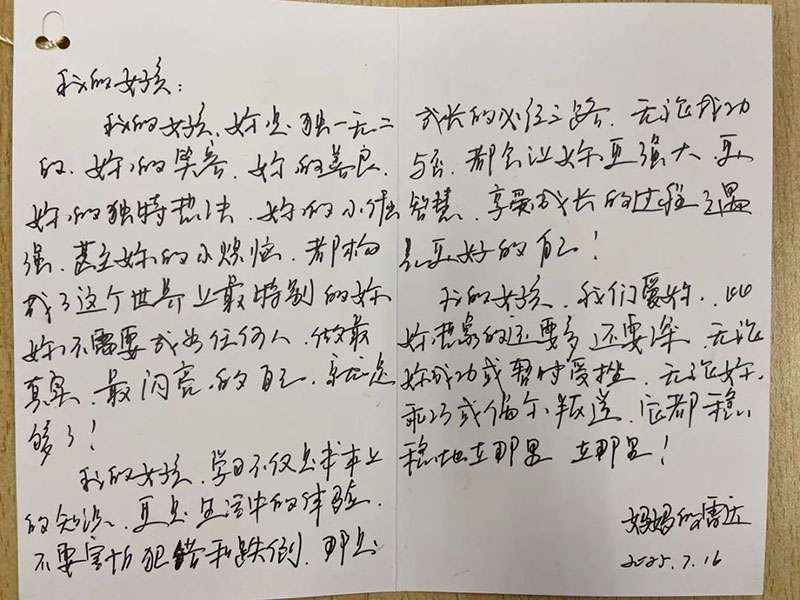 我的女孩：
我的女孩，妳是独一无二
的，妳的笑容，妳的善良，
妳的独特想法，妳的小倔
强，甚至妳的小烦恼，都构
成了这个世界上最特别的妳
妳不需要成为任何人，做最
真实、最闪亮的自己，就足
够了！
我的女孩，学习不仅是书本上
的知识，更是生活中的体验，
不要害怕犯错和跌倒，那是
成长的必经之路，无论成功
与否，都会让妳更强大、更
智慧，享受成长的过程，遇
见更好的自己！
我的女孩，我们爱妳，比
妳想象的还要多还要深，无论
妳成功或暂时受挫，无论妳
乖巧或偶尔叛逆，它都稳
稳地在那里，在那里！
妈妈的雷达
2025.7.16